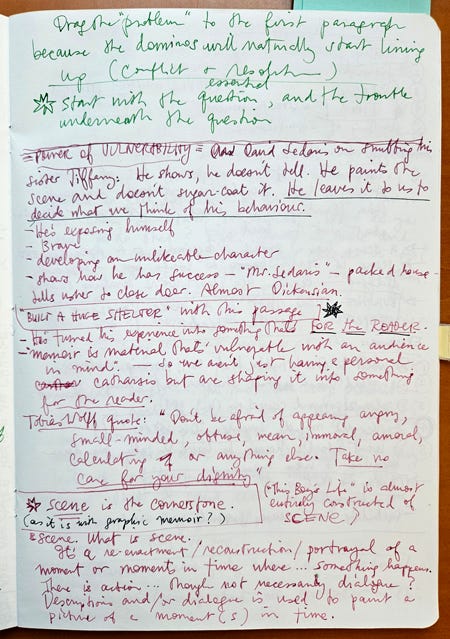 Drag the "problem" to the first paragraph
because the dominos will naturally start lining
up (conflict + resolution)
essential
start with the question, and the trouble
underneath the question
POWER OF VULNERABILITY = David Sedaris on snubbing his
sister Tiffany: He shows, he doesn't tell. He paints the
scene and doesn't sugar-coat it. He leaves it to us to
decide what we think of his behaviour.
- He's exposing himself
- Brave
- developing an unlikeable character
- shows how he has success - "Mr. Sedaris" - packed house -
tells usher to close door. Almost Dickensian.
"BUILT A HUGE SHELTER" with this passage
- He's turned his experience into something that's FOR THE READER.
- memoir is material that's vulnerable with an audience
in mind. - so we aren't just having a personal
catharsis but are shaping it into something
for the reader.
Tobias Wolff quote: "Don't be afraid of appearing angry,
small-minded, obtuse, mean, immoral, amoral,
calculating, or anything else. Take no
care for your dignity"
SCENE is the cornerstone.
(as it is with graphic memoir?)
("This Boy's Life" is almost
entirely constructed of
SCENE)
Scene. What is scene.
It's a re-enactment/reconstruction/portrayal of a
moment or moments in time where... something happens.
There is action... though not necessarily dialogue?
Descriptions and/or dialogue is used to paint a
picture of a moment(s) in time.